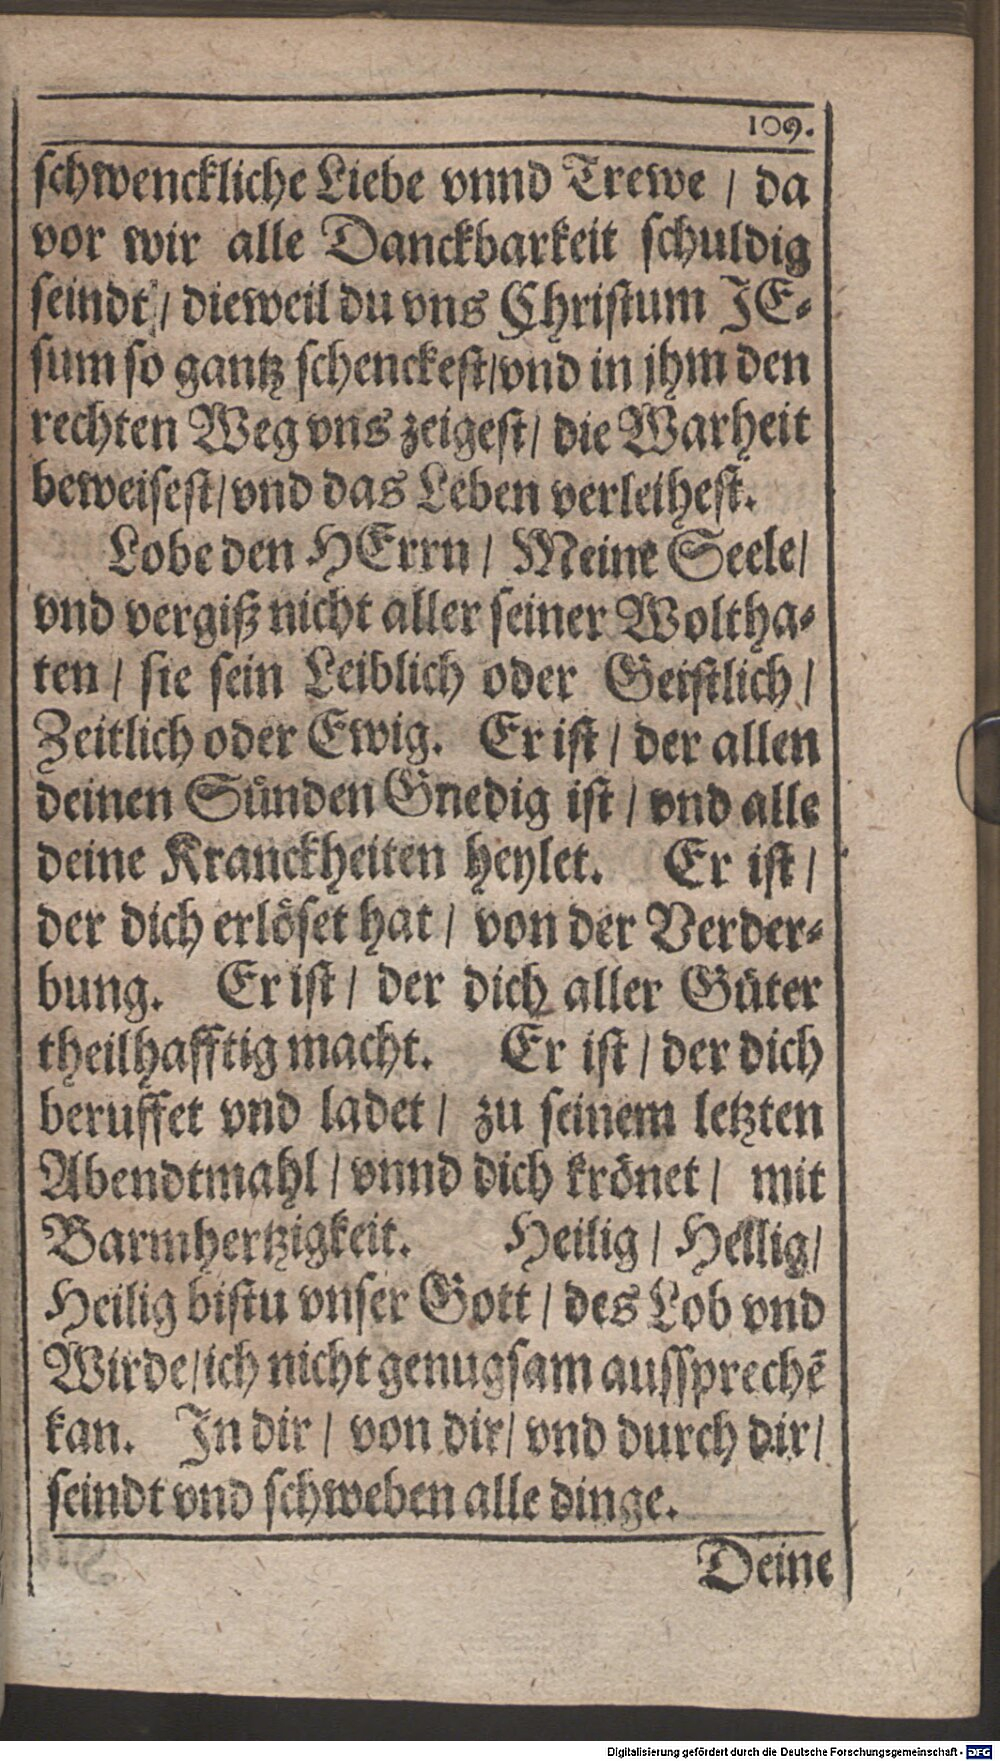 109.
schwenckliche Liebe vnnd Trewe / da
vor wir alle Danckbarkeit schuldig
seindt / dieweil du vns Christum JE-
sum so gantz schenckest/vnd in jhm den
rechten Weg vns zeigest/ die Warheit
beweisest/vnd das Leben verleihest.
Lobe den HErrn / Meine Seele/
vnd vergiß nicht aller seiner Woltha-
ten / sie sein Leiblich oder Geistlich /
Zeitlich oder Ewig. Er ist / der allen
deinen Sünden Gnedig ist / vnd alle
deine Kranckheiten heylet. Er ist /
der dich erlöset hat / von der Verder-
bung. Er ist / der dich aller Güter
theilhafftig macht. Er ist / der dich
beruffet vnd ladet / zu seinem letzten
Abendtmahl / vnnd dich krönet / mit
Barmhertzigkeit. Heilig / Heilig/
Heilig bistu vnser Gott / des Lob vnd
Wirde/ich nicht genugsam ausspreche͂
kan. In dir / von dir/ vnd durch dir/
seindt vnd schweben alle dinge.
Deine
Digitalisierung gefördert durch die Deutsche Forschungsgemeinschaft - DFG